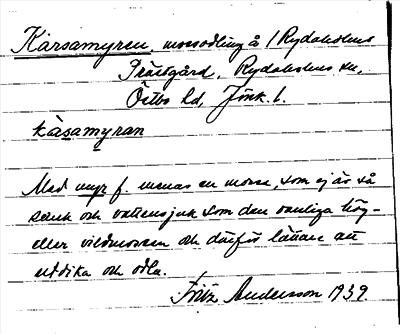 Kärsamyren, mossodling å 1 Rydaholms
Prästgård, Rydaholms sn,
Östbo hd, Jönk. l.
kärsamyran
Med myr f. menas en mosse, som ej är så
sank och vattensjuk som den vanliga hög-
eller vildmossen och därför lättare att
utdika och odla.
Fritz Andersson 1939.